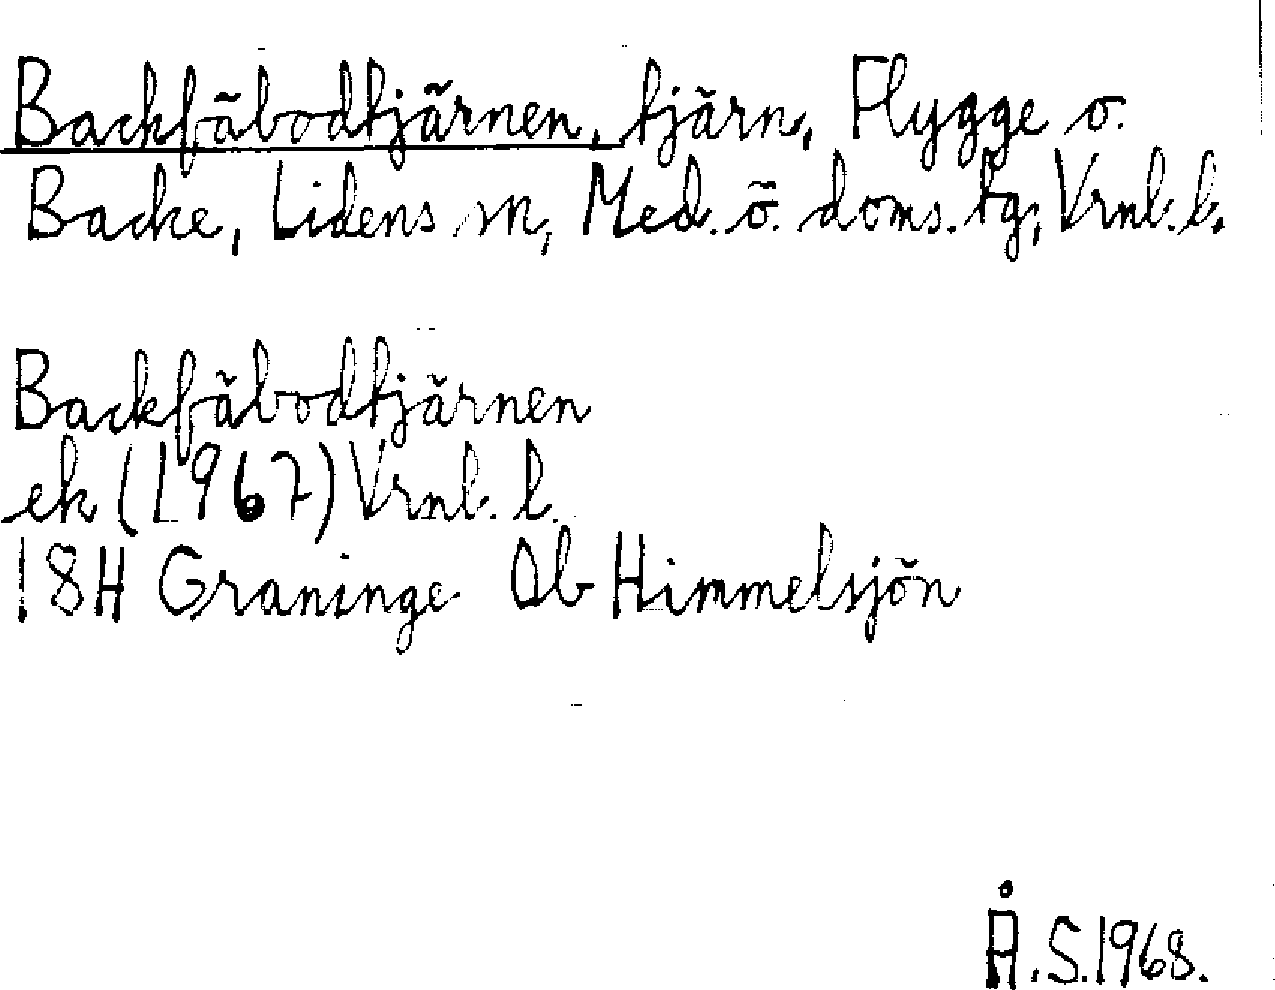 Backfäbodtjärnen, tjärn, Flygge o.
Backe, Lidens sn, Med. ö. doms. tg, Vrnl. l.
Backfäbodtjärnen
ek (1967) Vrnl. l.
18H Graninge 0b Himmelsjön
Å.S.1968.